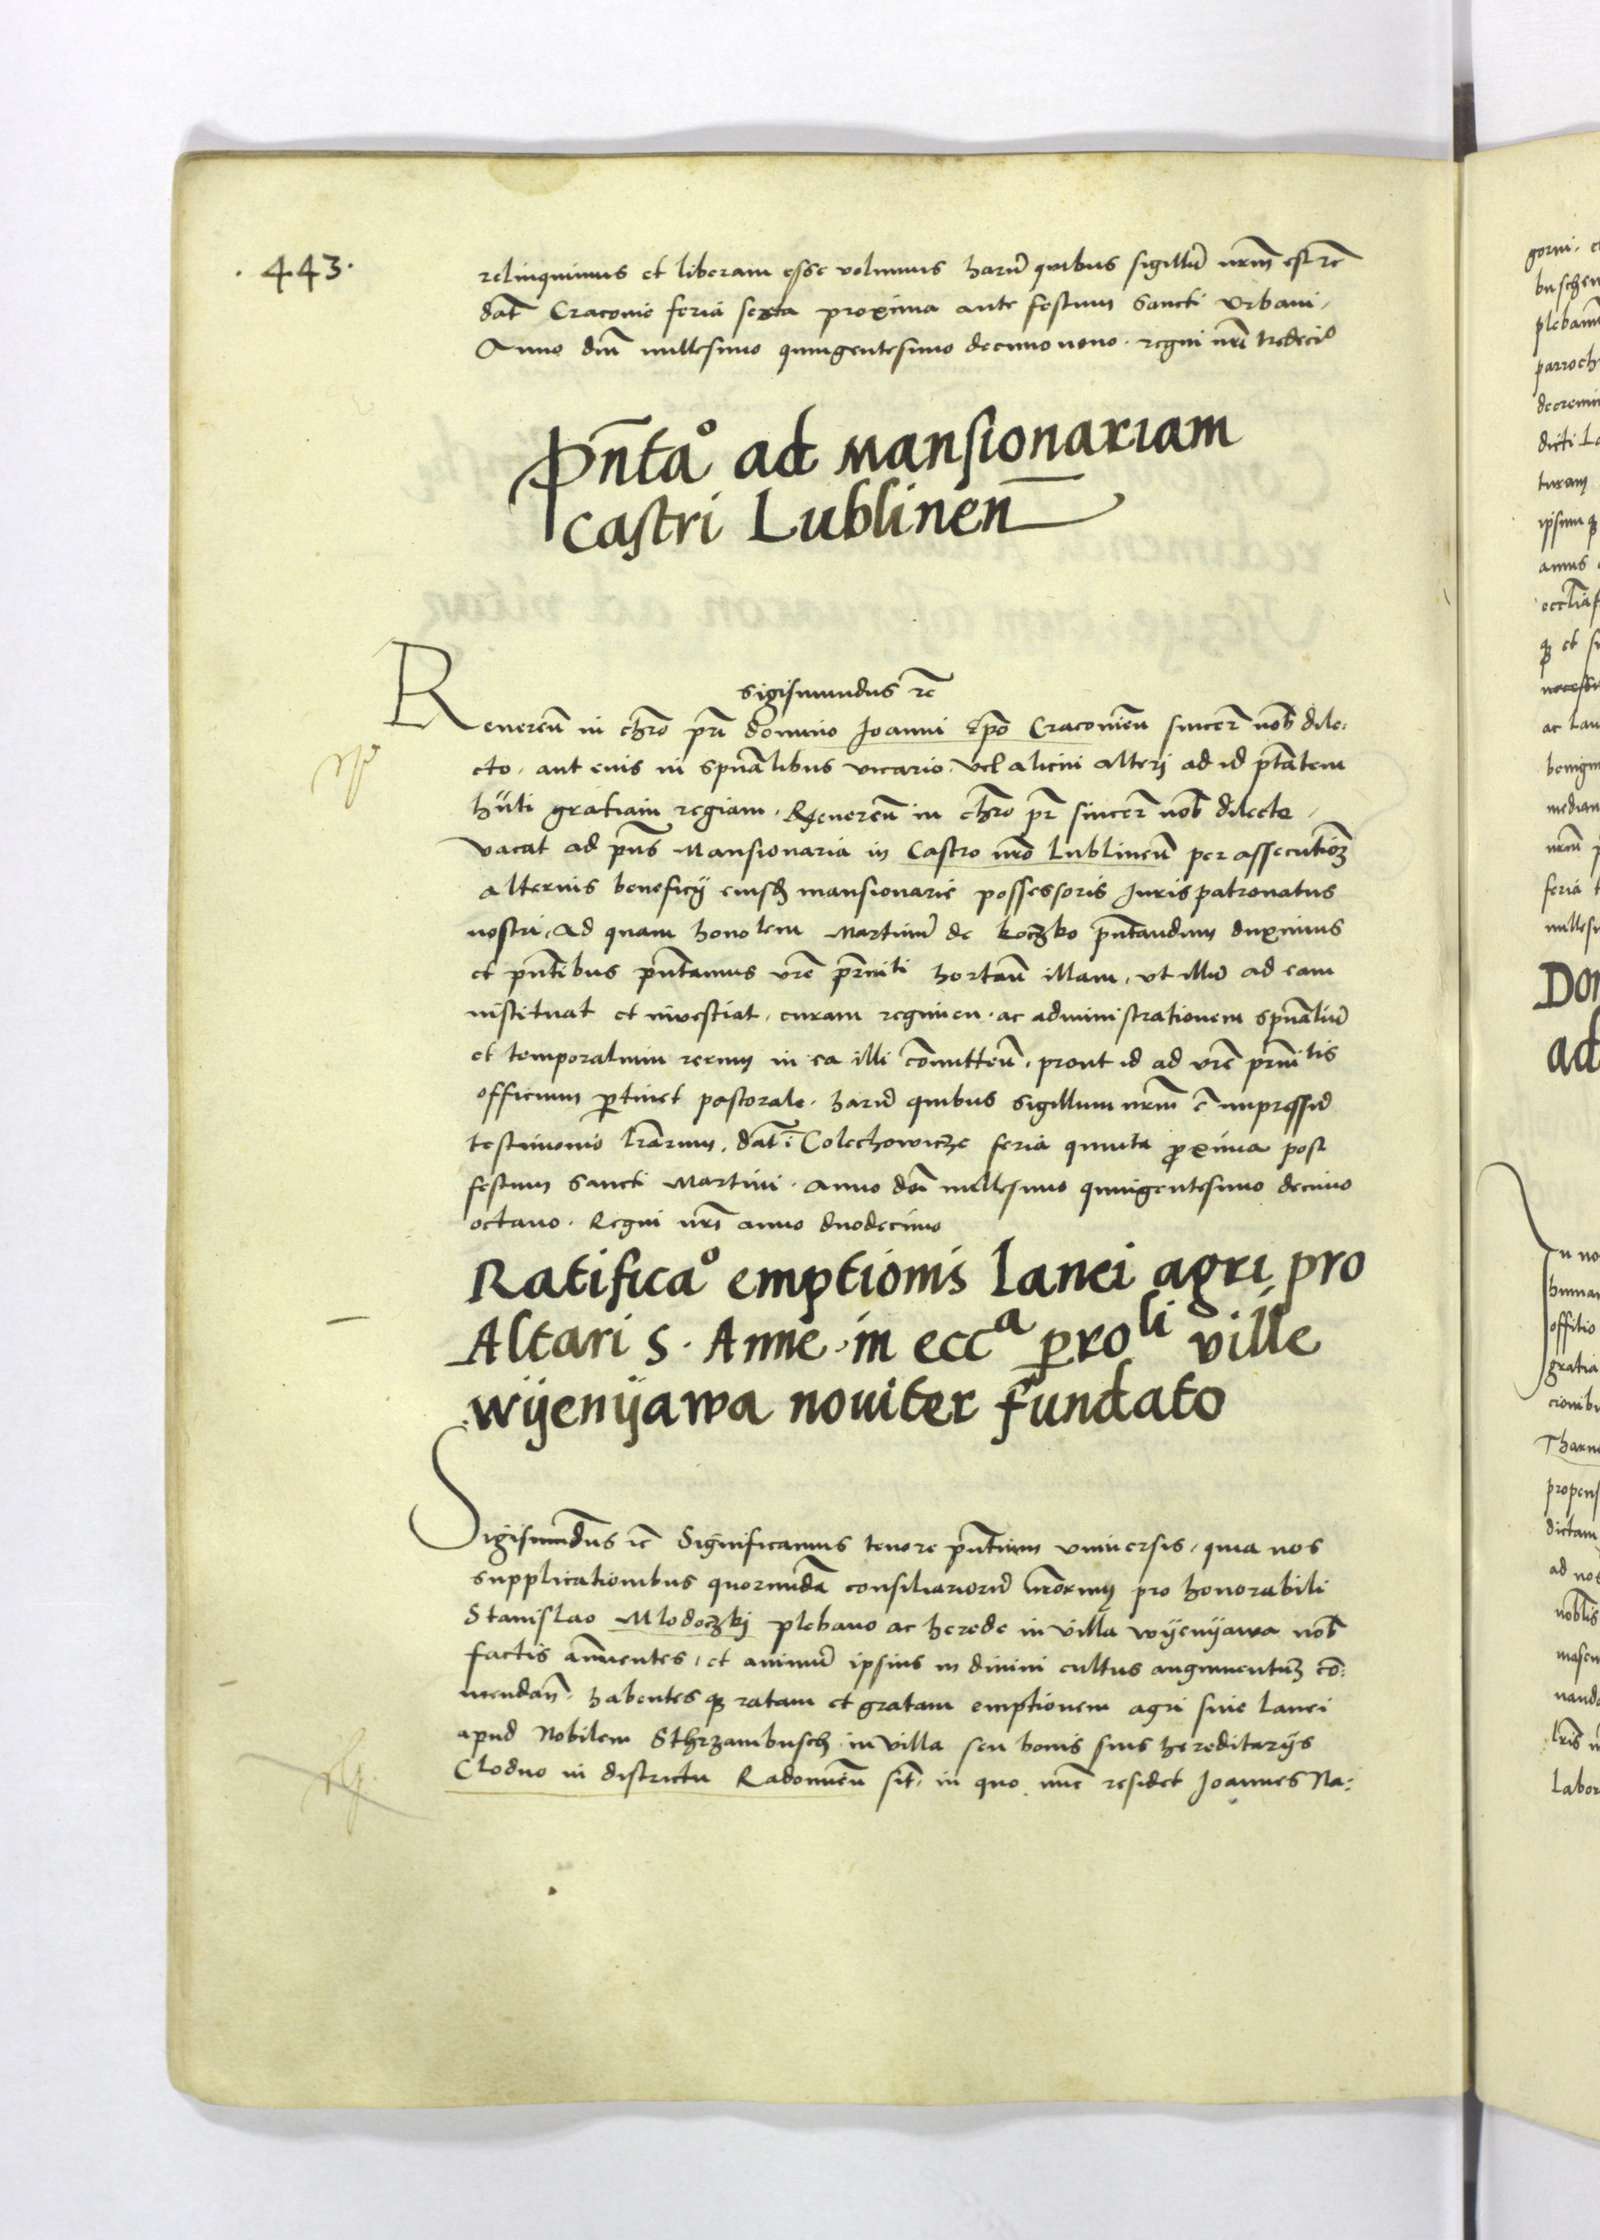 . 443 .
relinquimus et liberam esse volumus harũ quibus sigillũ nrm̃ est rc̃
dat̃ Cracouie feria sexta proxima ante festum Sancti Vrbani.
Anno dni͂ millesimo quingentesimo decimonono. regni nri͂ tredecĩo
Pñtaº ad mansionariam
castri Lublinen̄
Sigismundus rc̃
Reuereñ in chrõ pri͂ domino Joanni Epõ Cracouieñ sincer̃ nob̃ dile:
cto. aut eius in spũalibus vicario. vel alicui alteri ad id ptãtem
hñti gratiam regiam. Reuereñ in chrõ pr̃ sincer̃ nob̃ dilecte.
Vacat ad pñs Mansionaria in Castro nrõ Lublineñ per assecutioꝫ
alterius beneficij eiusd̃ mansionarie possessoris Jurispatronatus
nostri. Ad quam hono lem Martinũ de Koczko pñtandum duximus
et pñtibus pñtamus vrẽ pr̃niti hortañ illam. vt illũ ad eam
instituat et inuestiat. curam regimen. ac administrationem spũaliũ
et temporalium rerum in ea illi cõmitteñ. prout id ad vrẽ pr̃nitis
officium ꝑtinet pastorale. harũ quibus sigillum nrm̃ ẽ impressũ
testimonio lrãrum. dat̃ ĩ Colechowicze feria quinta ꝓxima post
festum Sancti Martini. Anno dni͂ millesimo quingentesimo decimo
octauo. Regni nri͂ anno duodecimo
Ratificaº emptionis lanei agri pro
Altari S. Anne in eccᵃ ꝑroˡⁱ ville
wijenijawa nouiter fundato
Sigismundus rc̃ Significamus tenore pñtium vniuersis. quia nos
supplicationibus quorundã consiliariorũ nrõrum pro honorabili
Stanislao Mlodoczkij plebano ac herede in villa wijenijawa nob̃
factis añuentes. et animũ ipsius in diuini cultus augmentuꝫ cõ:
mendañ. habentes qꝫ ratam et gratam emptionem agri siue lanei
apud Nobilem Sthrzambusch in villa seu bonis suis hereditarijs
Clodno in districtu Radomieñ sit̃. in quo nũc residet Joannes Na: